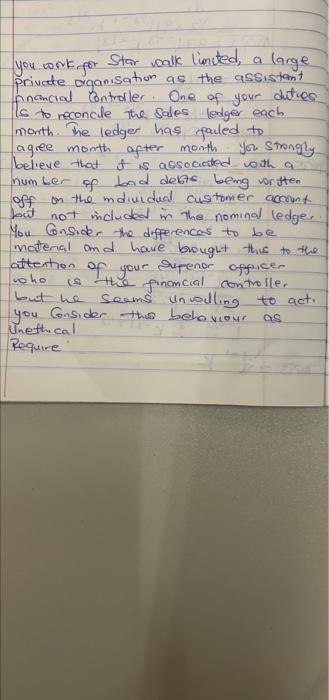 you work for Star walk limited, a large
private organisation as the assistant
financial Controller. One of your duties
is to reconcile the Sales ledger each
month. The ledger has failed to
agree month after month. You Strongly
believe that it is associated with a
number of bad debts being written
off on the individual customer account
but not included in the nominal ledger.
You Consider the differences to be
material and have bought this to the
attention of your Superior officer
who is the financial controller
but he seems unwilling to act.
you Consider this behaviour as
Unethical
Require